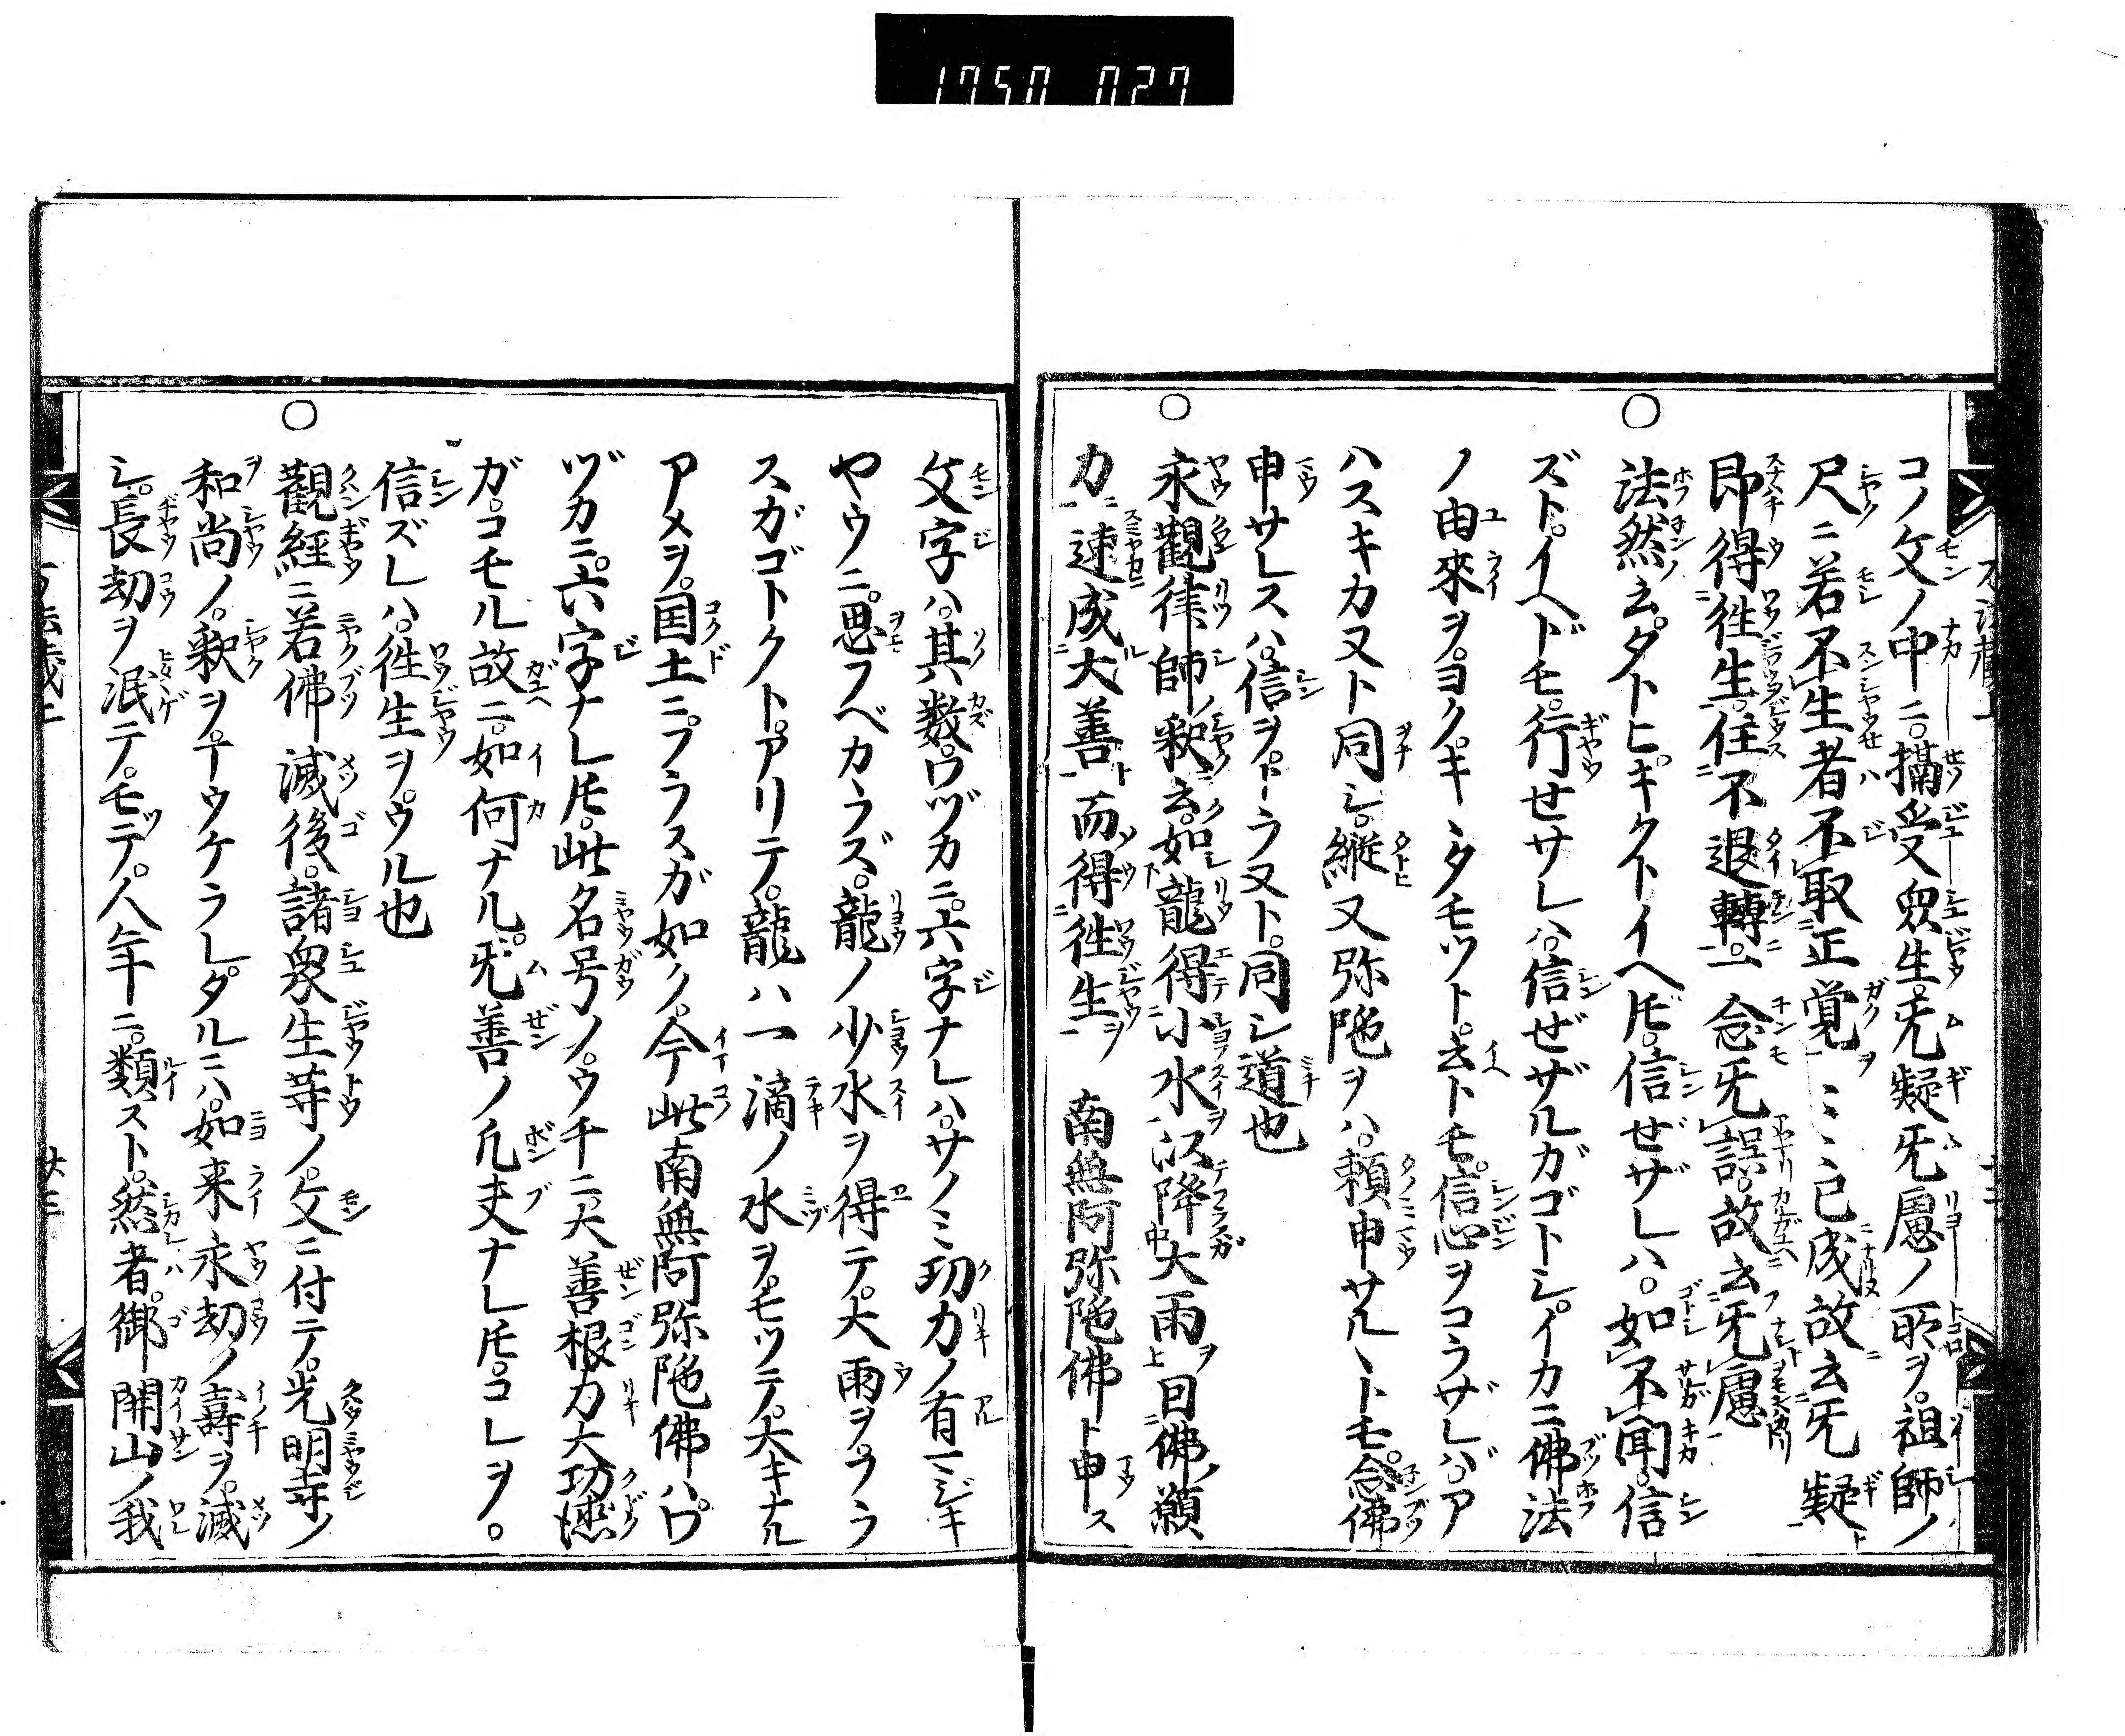 1750 027
コノ文ノ中ニ。摂受衆生。无疑无慮ノ所ヲ。祖師ノ
尺ニ若不生者不取正覚ヲ〻〻已成故云无疑ト
即得往生。住不退轉。一念无誤。故云无慮
○法然云。タトヒ。キクトイヘ𪜈。信ぜザレハ。如不聞。信
ズト。イヘドモ。行せサレハ。信ぜザルガゴトシ。イカニ佛法
ノ由來ヲ。ヨク。キヽタモツト。云トモ。信心ヲコラザレバ。ア
ハスキカヌト同シ。縦又弥陀ヲハ。頼申サルヽトモ。念佛
申サレスハ。信ヲ。トラヌト。同シ道也
○永觀律師ノ釈云。如龍得小水以降大雨ヲ曰佛ノ願
力速成大善而得往生ヲ 南無阿弥陀佛ト申ス
文字ハ。其数。ワヅカニ。六字ナレハ。サノミ功力ノ有ヘジキ
ヤウニ。思フベカラズ。龍ノ少水ヲ得テ。大雨ヲフラ
スガゴトクト。アリテ。龍ハ一滴ノ水ヲ。モツテ。大キナル
アメヲ。国土ニ。フラスガ如ク。今此南無阿弥陀佛ハ。ワ
ヅカニ。六字ナレ𪜈。此名号ノ。ウチニ。大善根力大功徳
ガ。コモル故ニ。如何ナル。无善ノ凡夫ナレ𪜈。コレヲ。
信ズレハ。往生ヲ。ウル也
○觀經ニ若佛滅後。諸衆生等ノ。文ニ付テ。光明寺ノ
和尚ノ。釈ヲ。マウケラレタルニハ。如来永劫ノ壽ヲ。滅
シ。長劫ヲ泯テ。モテ。人年ニ。類スト。然者。御開山ノ我